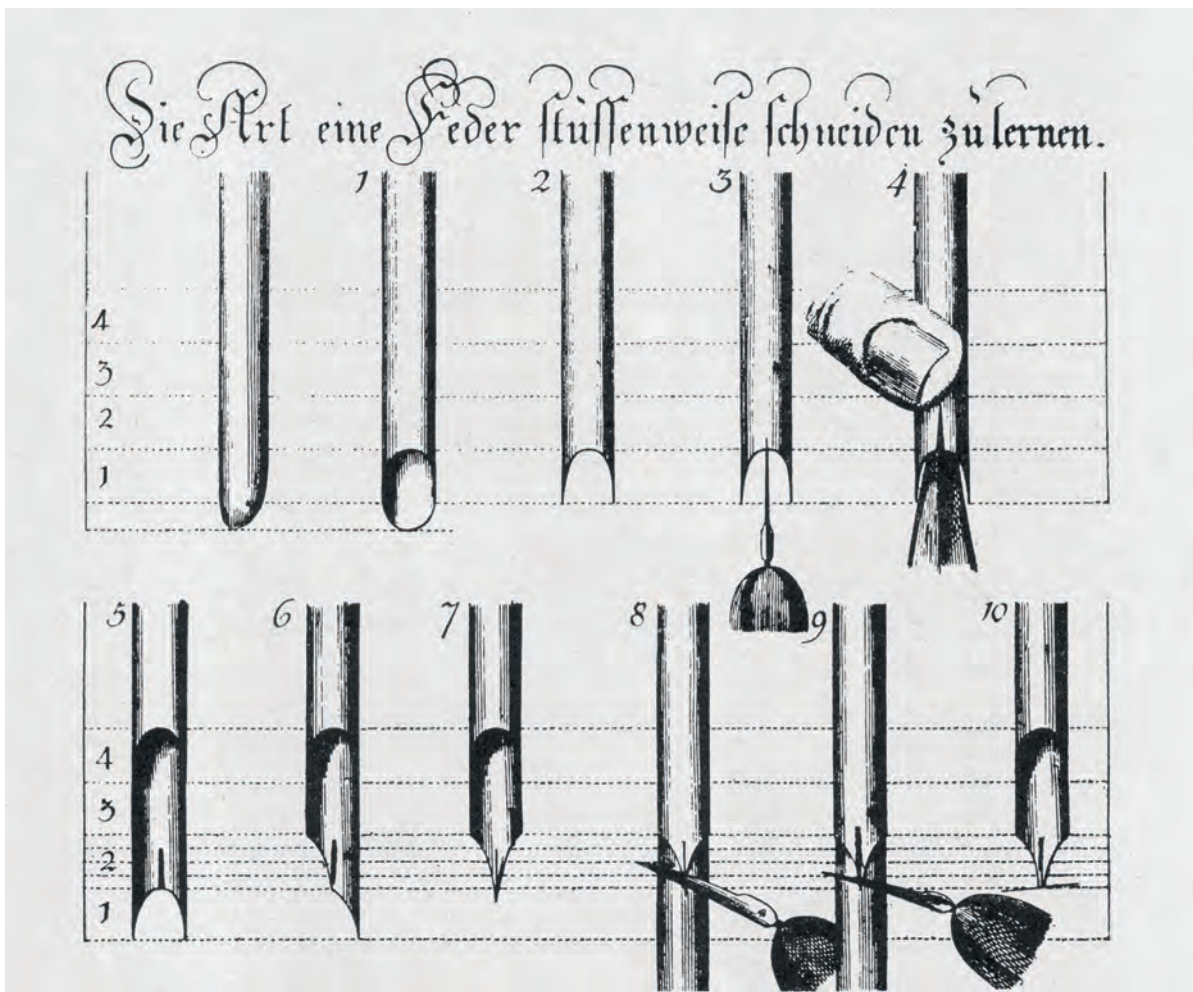 Die Art eine Feder stuffenweise schneiden zu lernen.
1 2 3 4
4
3
2
1
5 6 7 8 9 10
4
3
2
1